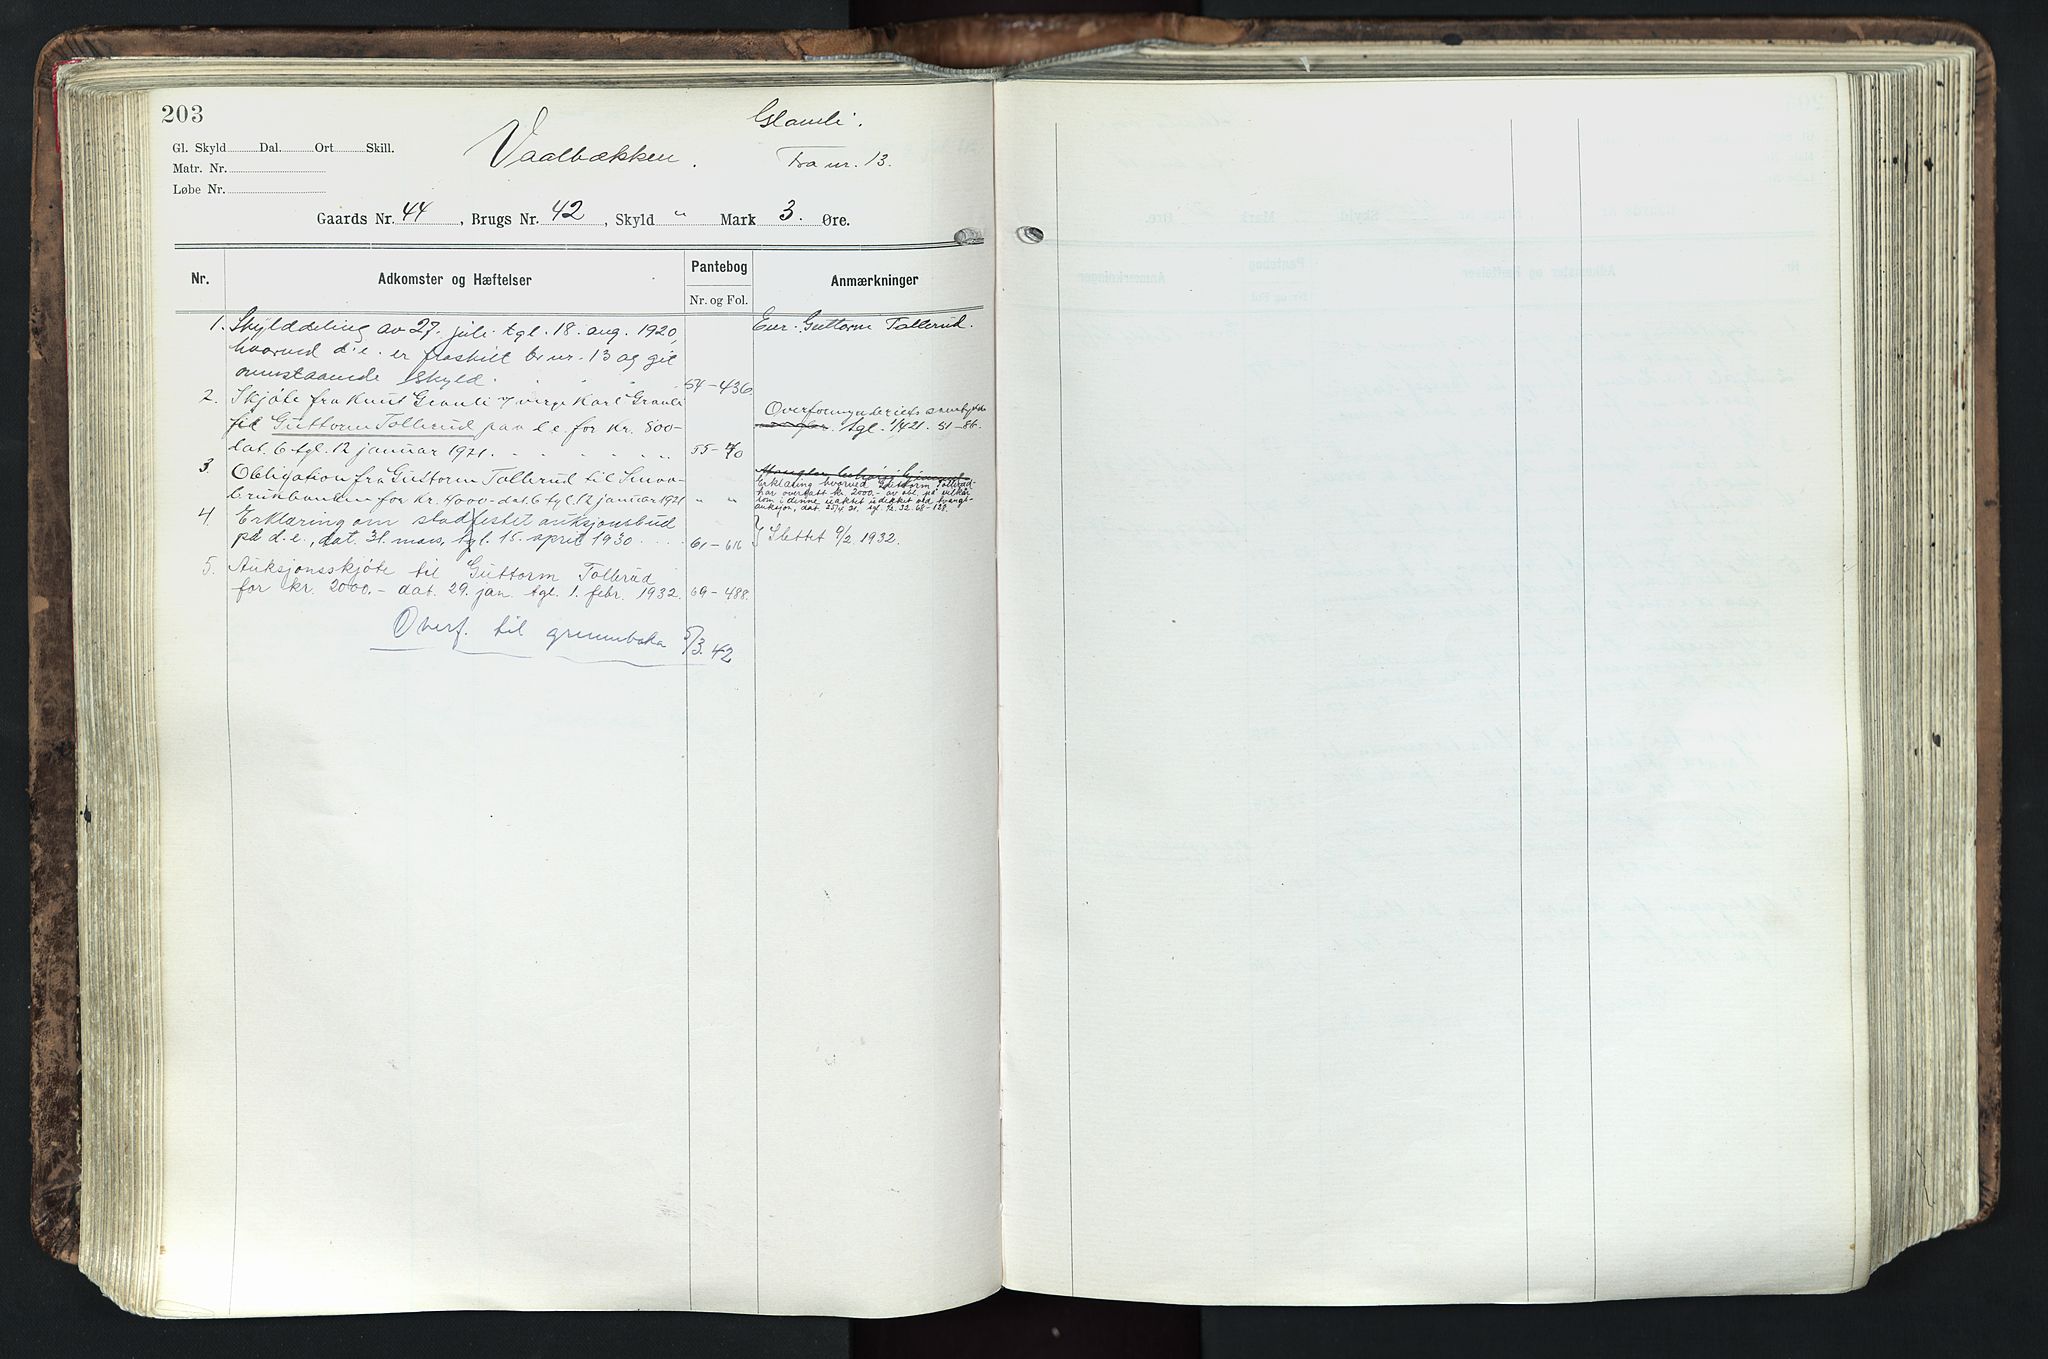 203
Glamli.
Vaalbækken. Fra nr. 13.
Gl. Skyld Dal. Ort Skill.
Matr. Nr.
Løbe Nr.
Gaards Nr. 44, Brugs Nr. 42, Skyld " Mark 3. Øre.
Nr. Adkomster og Hæftelser Pantebog Nr. og Fol. Anmærkninger
1. Skylddeling av 27. juli tgl. 18. aug. 1920,
hvorved d.e. er fraskilt br nr. 13 og git
ovenstaaende skyld. 54-436
Eier. Guttorm Tollerud.
2. Skjøte fra Knut Granli v/ verge Karl Granli
til Guttorm Tollerud paa d.e. for kr. 500-
dat. 6 tgl. 12 januar 1921. 55-70
Overformynderiets samtykke
tgl. 1/4 21. 51-86.
3. Obligation fra Guttorm Tollerud til Smaa-
brukbanken for kr. 4000- dat. 6 tgl. 12 januar 1921 " "
Erklæring hvorved Guttorm Tollerud
har overtatt kr. 2000.- av obl. på vilkår
som i denne uaktet udekket ved tvangs-
auksjon, dat. 25/4 31. tgl. 32. 68-128.
4. Erklæring om stadfestet auksjonsbud
på d.e., dat. 31. mars, tgl. 15. april 1930. 61-616
Slettet 1/2 1932.
5. Auksjonsskjøte til Guttorm Tollerud
for kr. 2000.- dat. 29. jan. tgl. 1. febr. 1932. 69-488.
Overf. til grunnboka 5/3. 42